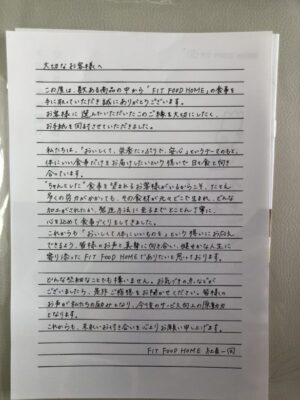 大切なお客様へ
この度は、数ある商品の中から「FIT FOOD HOME」の食事を
手に取っていただき誠にありがとうございます。
お客様に選んでいただいたこのご縁を大切にしたく、
お手紙を同封させていただきました。
私たちは、「おいしくて、栄養たっぷりで、安心」というテーマのもと、
体にいい食事だけをお届けしたいという想いで日々食と向き
合っています。
"ちゃんとした"食事を望まれるお客様がいるからこそ、たとえ
多くの労力がかかっても、その食材が元々どこで生まれ、どんな
加工がされたか、製造方法に至るまでとことん丁寧に、
心を込めて食事づくりをしてきました。
これからも"おいしくて体にいいものを"という想いにお応え
できるよう、皆様のお声と真摯に向き合い、健やかな人生に
寄り添ったFIT FOOD HOMEでありたいと思っております。
どんな些細なことでも構いません。お気づきの点などが
ございましたら、是非ご感想をお聞かせください。皆様の
お声が私たちの励みとなり、今後のサービス向上の原動力
となります。
これからも、末永いお付き合いを心よりお願い申し上げます。
FIT FOOD HOME 社員一同